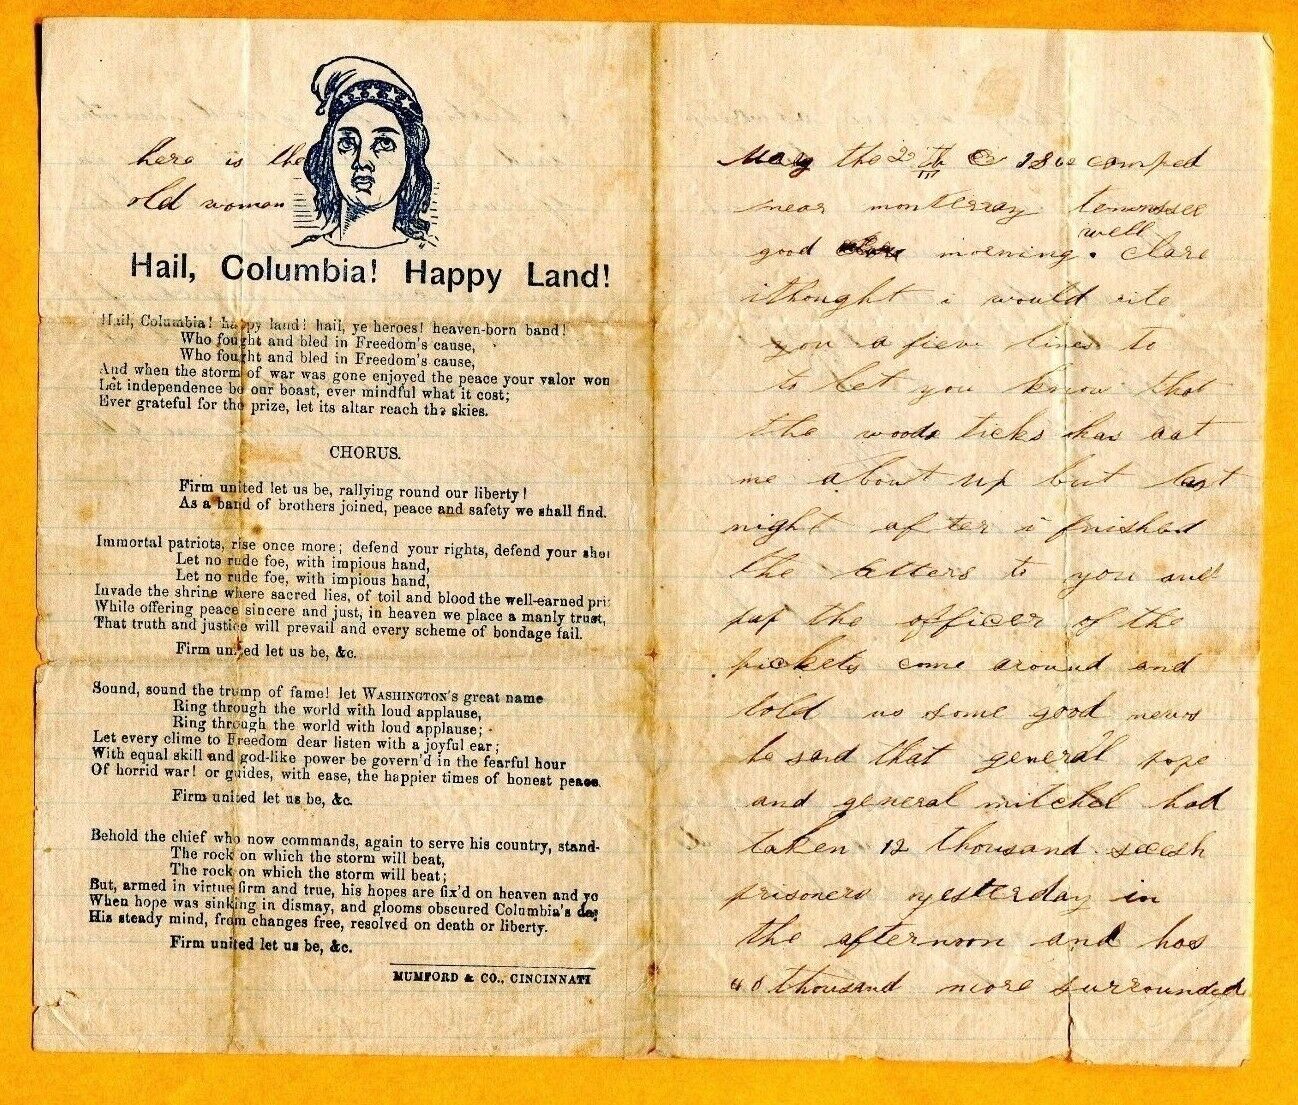 here is the
old woman
Hail, Columbia! Happy Land!
Hail, Columbia! happy land! hail, ye heroes! heaven-born band!
Who fought and bled in Freedom's cause,
Who fought and bled in Freedom's cause,
And when the storm of war was gone enjoyed the peace your valor won
Let independence be our boast, ever mindful what it cost;
Ever grateful for the prize, let its altar reach the skies.
CHORUS.
Firm united let us be, rallying round our liberty!
As a band of brothers joined, peace and safety we shall find.
Immortal patriots, rise once more; defend your rights, defend your shor
Let no rude foe, with impious hand,
Let no rude foe, with impious hand,
Invade the shrine where sacred lies, of toil and blood the well-earned pri
While offering peace sincere and just, in heaven we place a manly trust,
That truth and justice will prevail and every scheme of bondage fail.
Firm united let us be, &c.
Sound, sound the trump of fame! let WASHINGTON'S great name
Ring through the world with loud applause,
Ring through the world with loud applause;
Let every clime to Freedom dear listen with a joyful ear;
With equal skill and god-like power be govern'd in the fearful hour
Of horrid war! or guides, with ease, the happier times of honest peace.
Firm united let us be, &c.
Behold the chief who now commands, again to serve his country, stand-
The rock on which the storm will beat,
The rock on which the storm will beat;
But, armed in virtue firm and true, his hopes are fix'd on heaven and yo
When hope was sinking in dismay, and glooms obscured Columbia's day
His steady mind, from changes free, resolved on death or liberty.
Firm united let us be, &c.
MUMFORD & CO., CINCINNATI
May the 22 th 1862 camped
near monterray tennessee
good morning. well Clare
ithought i would rite
you a fiew lines to
to let you know that
the woods ticks has aat
me about up but last
night after i finished
the letters to you and
pap the officer of the
pickets come around and
told us some good news
he said that general pope
and general mitchel had
taken 12 thousand secesh
prisoners yesterday in
the afternoon and has
40 thousand more surrounded